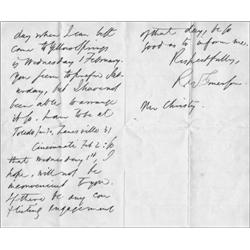 day when I can best
come to Yellow Springs
is Wednesday 1 February.
You seem to prefer Sat-
urday, but I have not
been able to arrange
it so. I am to be at
Toledo Zanesville 31
Cincinnati Feb 2: so
that Wednesday 1st, I
hope, will not be
inconvenient to you.
If there be any con
flicting engagement
of that day, be so
good as to inform me.
Respectfully,
R. W. Emerson
Mr Christy.